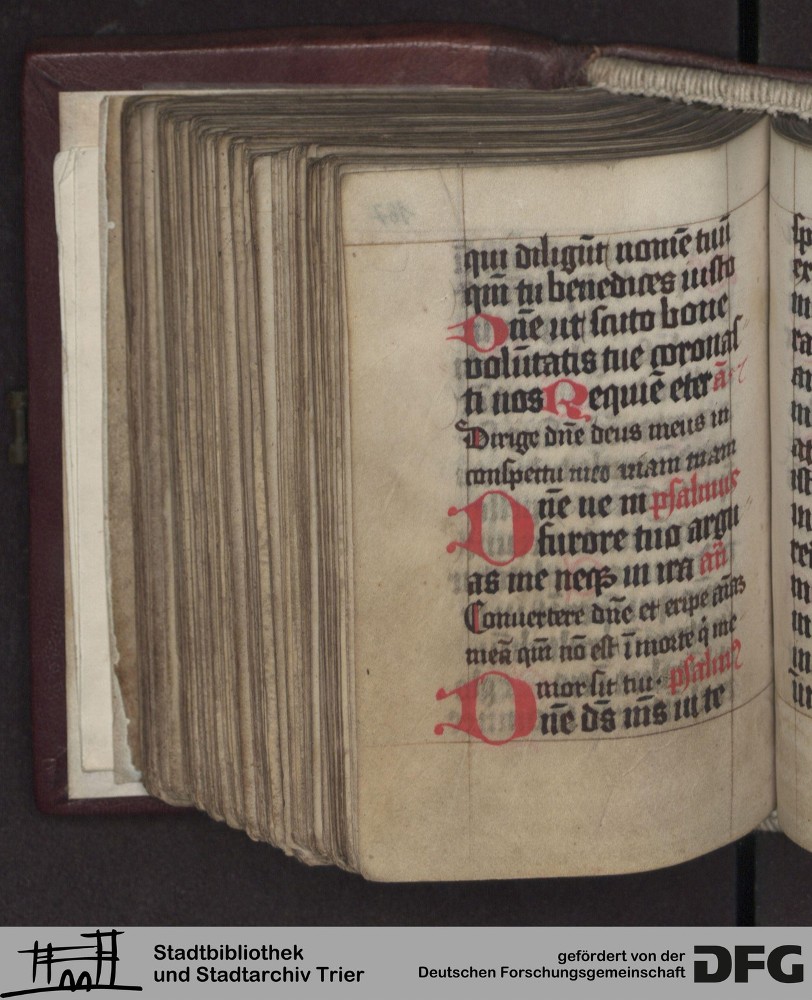 qui diligūt nomē tuū
qm̄ tu benedices iusto
Dn̄e ut scuto bone
volūtatis tue coronas
ti nos Requiē eter ā
Dirige dn̄e deus meus in
conspectu tuo uiam meam
Dn̄e ne in psalmus
furore tuo argu
as me neqꝫ in ira an̄
Conuertere dn̄e et eripe aīaꝫ
meā qm̄ nō est ī morte q̇ me
mor sit tui psalm9
Dn̄e ds̄ ms̄ in te
Stadtbibliothek
und Stadtarchiv Trier
gefördert von der
Deutschen Forschungsgemeinschaft
DFG